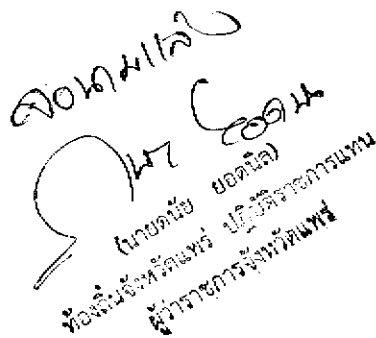 ลงนามแล้ว
(นายดนัย ยอดนิล)
ท้องถิ่นจังหวัดแพร่ ปฏิบัติราชการแทน
ผู้ว่าราชการจังหวัดแพร่